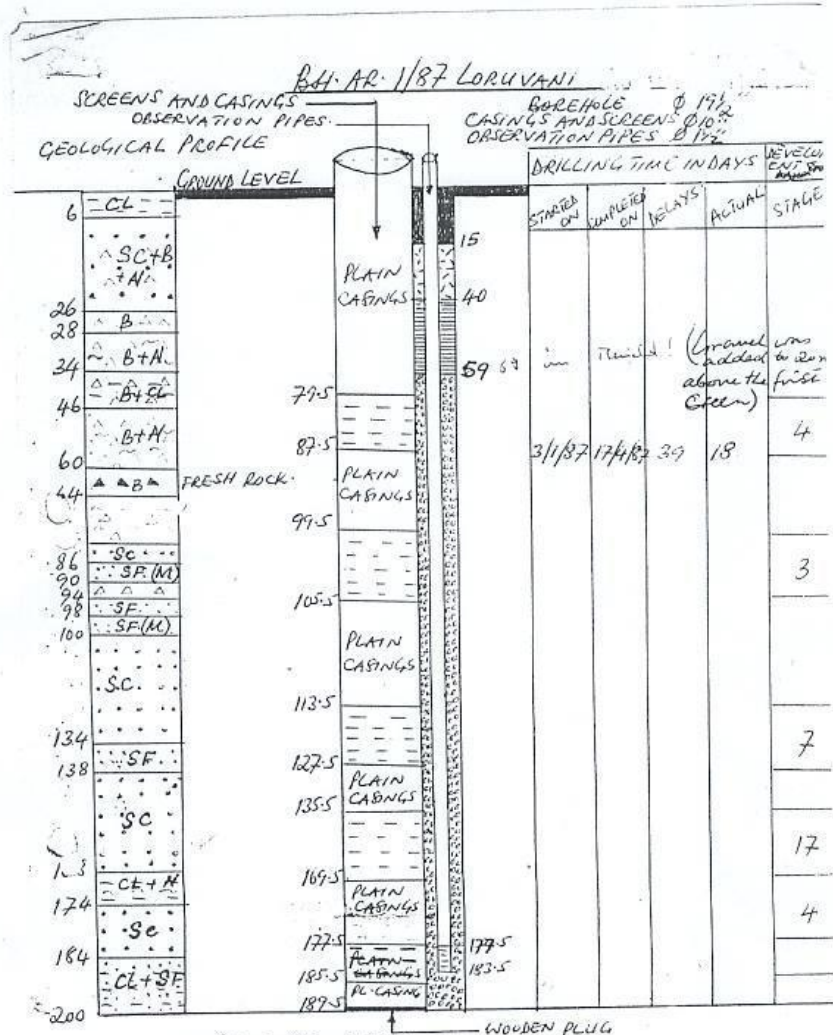 BH. AR. 1/87 LORUVANI
SCREENS AND CASINGS
OBSERVATION PIPES.
GEOLOGICAL PROFILE
BOREHOLE Ø 19½"
CASINGS AND SCREENS Ø 10"
OBSERVATION PIPES Ø 1½"
GROUND LEVEL
DRILLING TIME IN DAYS
STARTED ON
COMPLETED ON
DELAYS
ACTUAL
STAGE
6
CL
SC+B
+N
26
B
28
B+N
34
B+CL
46
B+N
60
B
FRESH ROCK.
44
SC
86
SF(M)
90
94
SF
98
SF(M)
100
SC
134
SF
138
SC
CL+N
174
SC
184
CL+SF
200
PLAIN CASINGS
79.5
87.5
PLAIN CASINGS
99.5
105.5
PLAIN CASINGS
113.5
127.5
PLAIN CASINGS
135.5
169.5
PLAIN CASINGS
177.5
PLAIN CASINGS
185.5
PL. CASING
189.5
15
40
59
177.5
183.5
(Gravel was
added to 20m
above the first
Screen)
3/1/87 17/4/87 39 18
4
3
7
17
4
WOODEN PLUG